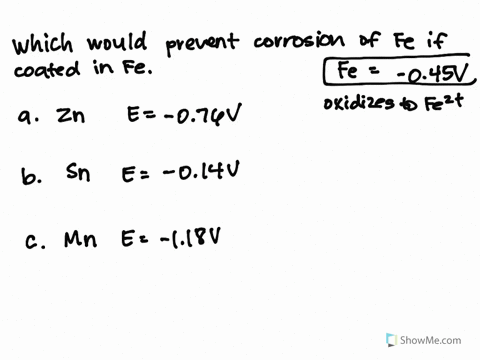 which would prevent corrosion of Fe if
coated in Fe.
Fe = -0.45V
oxidizes to Fe²⁺
a. Zn E = -0.76V
b. Sn E = -0.14V
c. Mn E = -1.18V
ShowMe.com